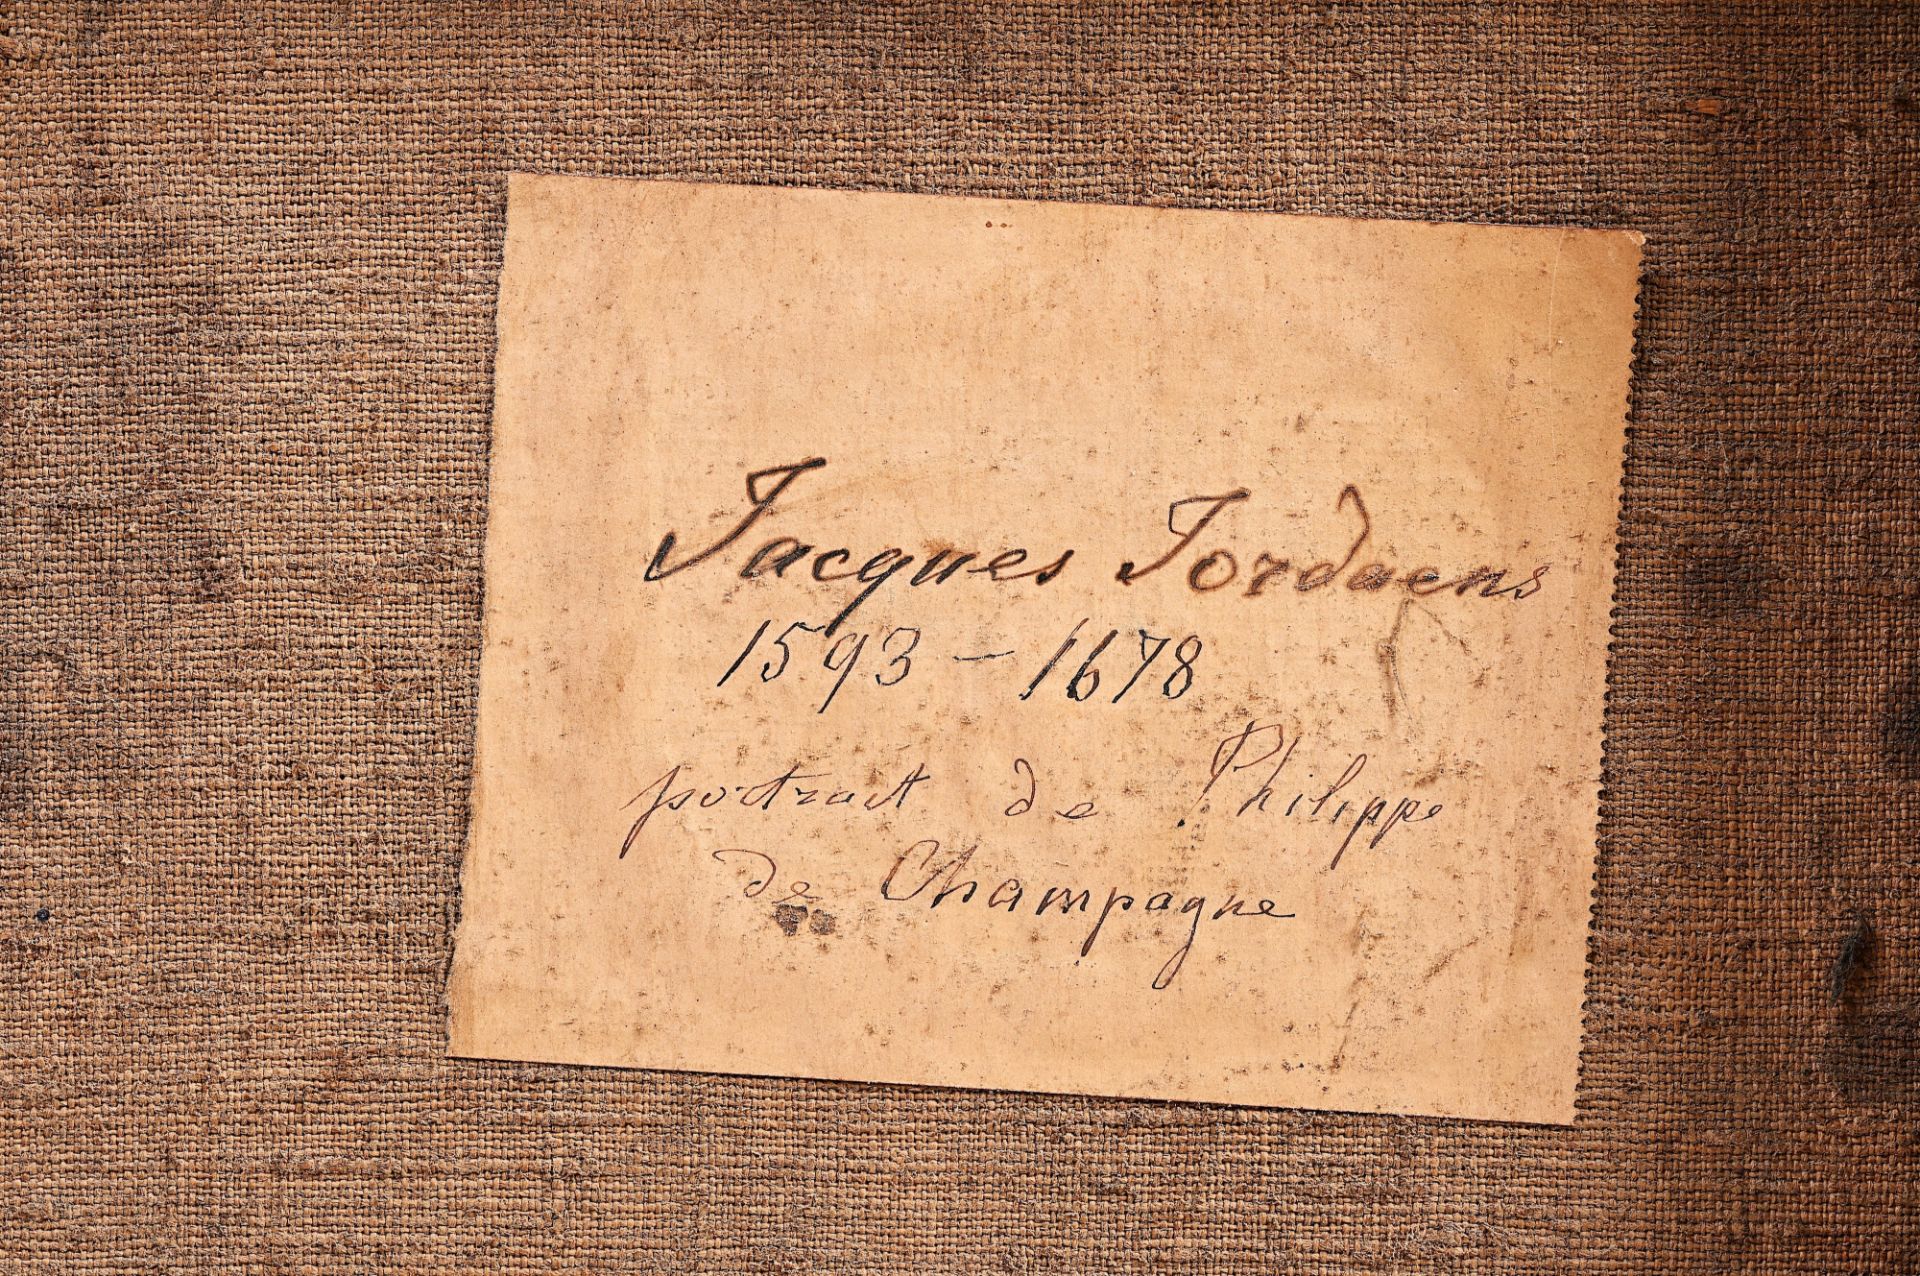 Jacques Jordaens
1593 - 1678
portrait de Philippe
de Champagne